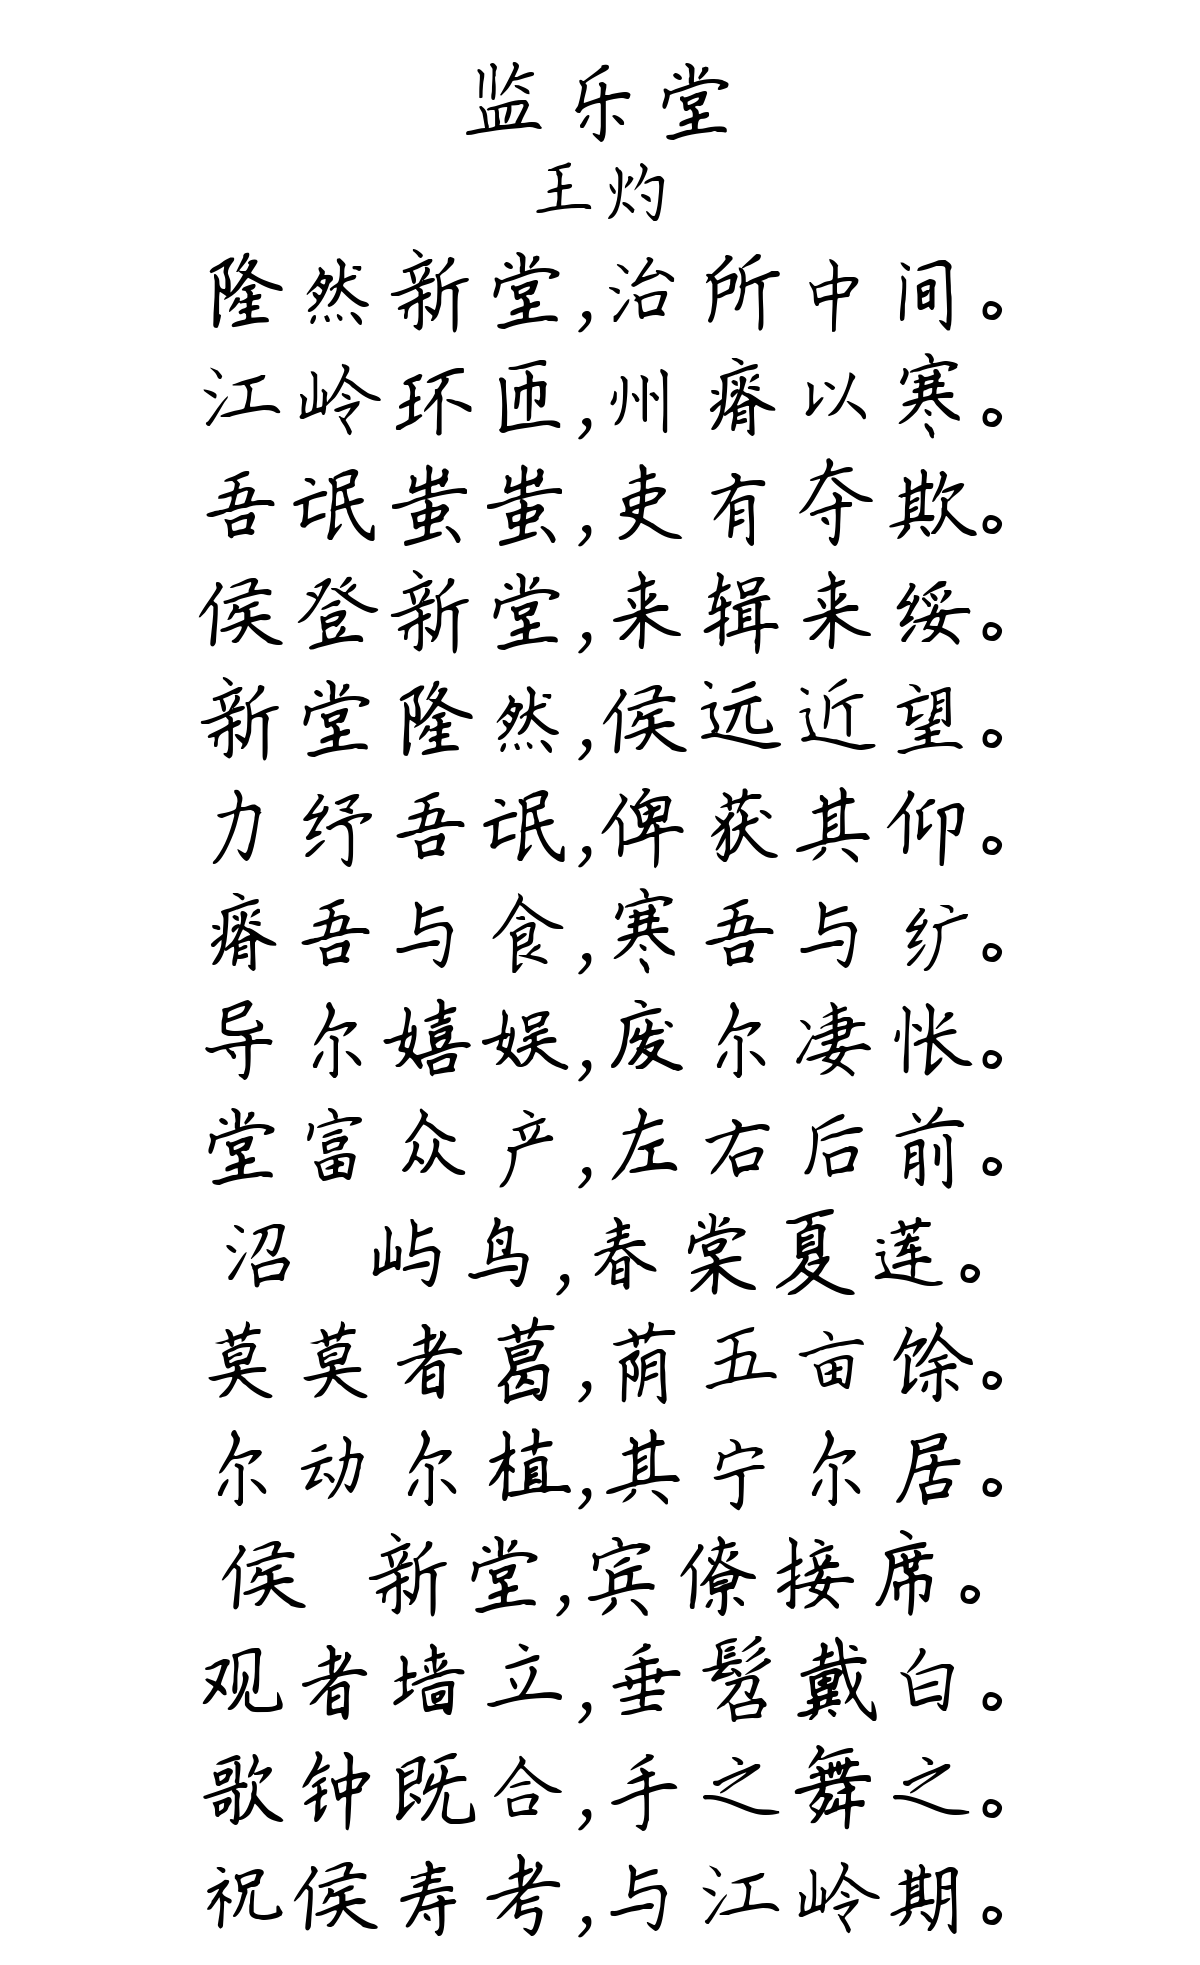 监乐堂
王灼
隆然新堂,治所中间。
江岭环匝,州瘠以寒。
吾氓蚩蚩,吏有夺欺。
侯登新堂,来辑来绥。
新堂隆然,侯远近望。
力纾吾氓,俾获其仰。
瘠吾与食,寒吾与纩。
导尔嬉娱,废尔凄怅。
堂富众产,左右后前。
沼 屿鸟,春棠夏莲。
莫莫者葛,荫五亩馀。
尔动尔植,其宁尔居。
侯 新堂,宾僚接席。
观者墙立,垂髫戴白。
歌钟既合,手之舞之。
祝侯寿考,与江岭期。